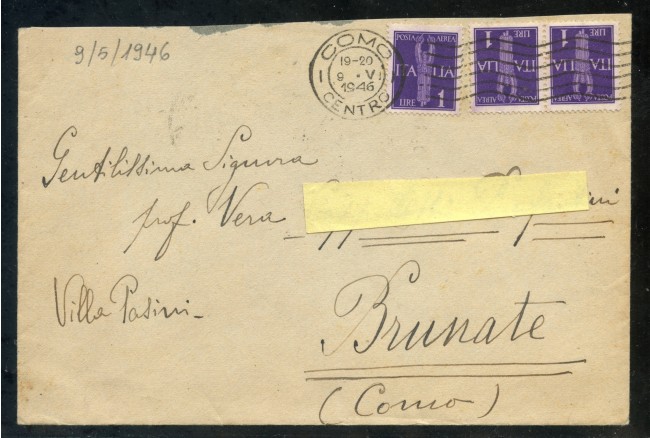 9/5/1946
COMO
19-20
9 · V
1946
CENTRO
POSTA AEREA
ITALIA
LIRE 1
POSTA AEREA
ITALIA
LIRE 1
POSTA AEREA
ITALIA
LIRE 1
Gentilissima Signora
prof. Vera
Villa Pasini -
Brunate
(Como)